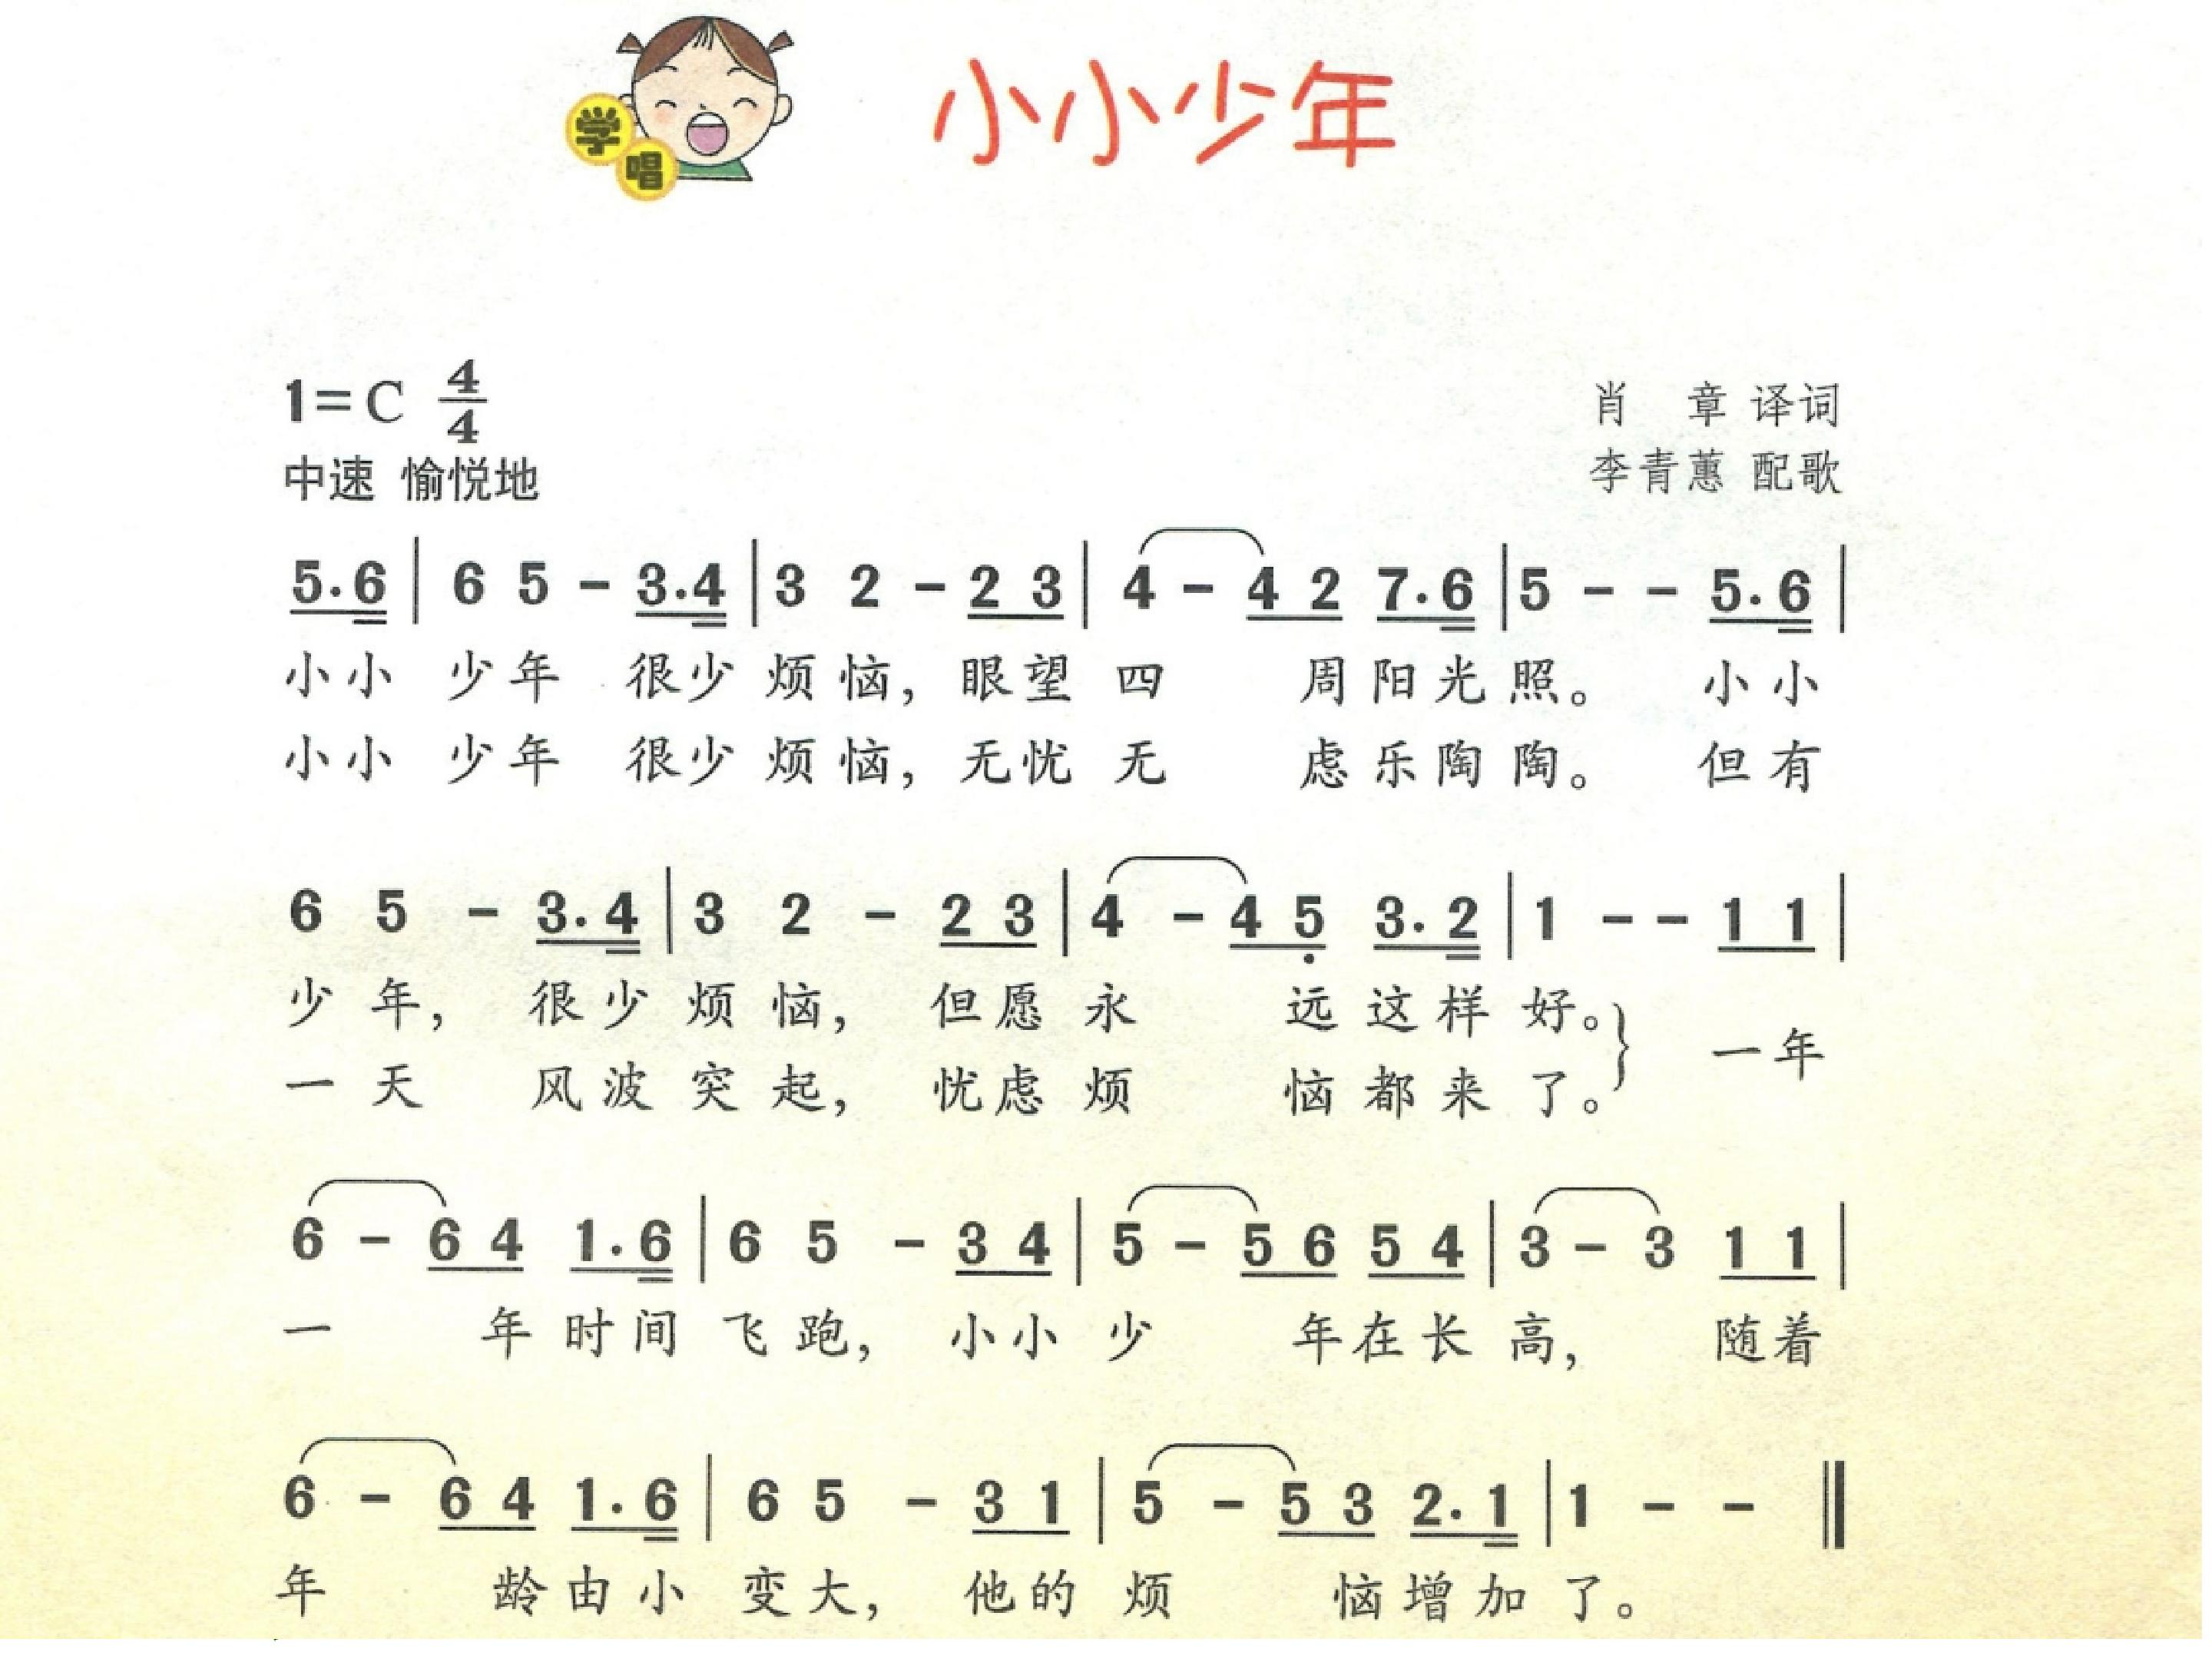 学唱
小小少年
1=C 4/4
肖 章 译词
中速 愉悦地
李青蕙 配歌
5.6 | 6 5 - 3.4 | 3 2 - 2 3 | 4 - 4 2 7.6 | 5 - - 5.6 |
小小 少年 很少 烦恼，眼望 四 周阳光照。 小小
小小 少年 很少 烦恼，无忧 无 虑乐陶陶。 但有
6 5 - 3.4 | 3 2 - 2 3 | 4 - 4 5̣ 3.2 | 1 - - 1 1 |
少 年， 很少 烦恼， 但愿 永 远这样 好。} 一年
一 天 风波 突起， 忧虑 烦 恼都来 了。
6 - 6 4 1.6 | 6 5 - 3 4 | 5 - 5 6 5 4 | 3 - 3 1 1 |
一 年时间 飞跑， 小小 少 年在长 高， 随着
6 - 6 4 1.6 | 6 5 - 3 1 | 5 - 5 3 2.1 | 1 - - ‖
年 龄由小 变大， 他的 烦 恼增加 了。